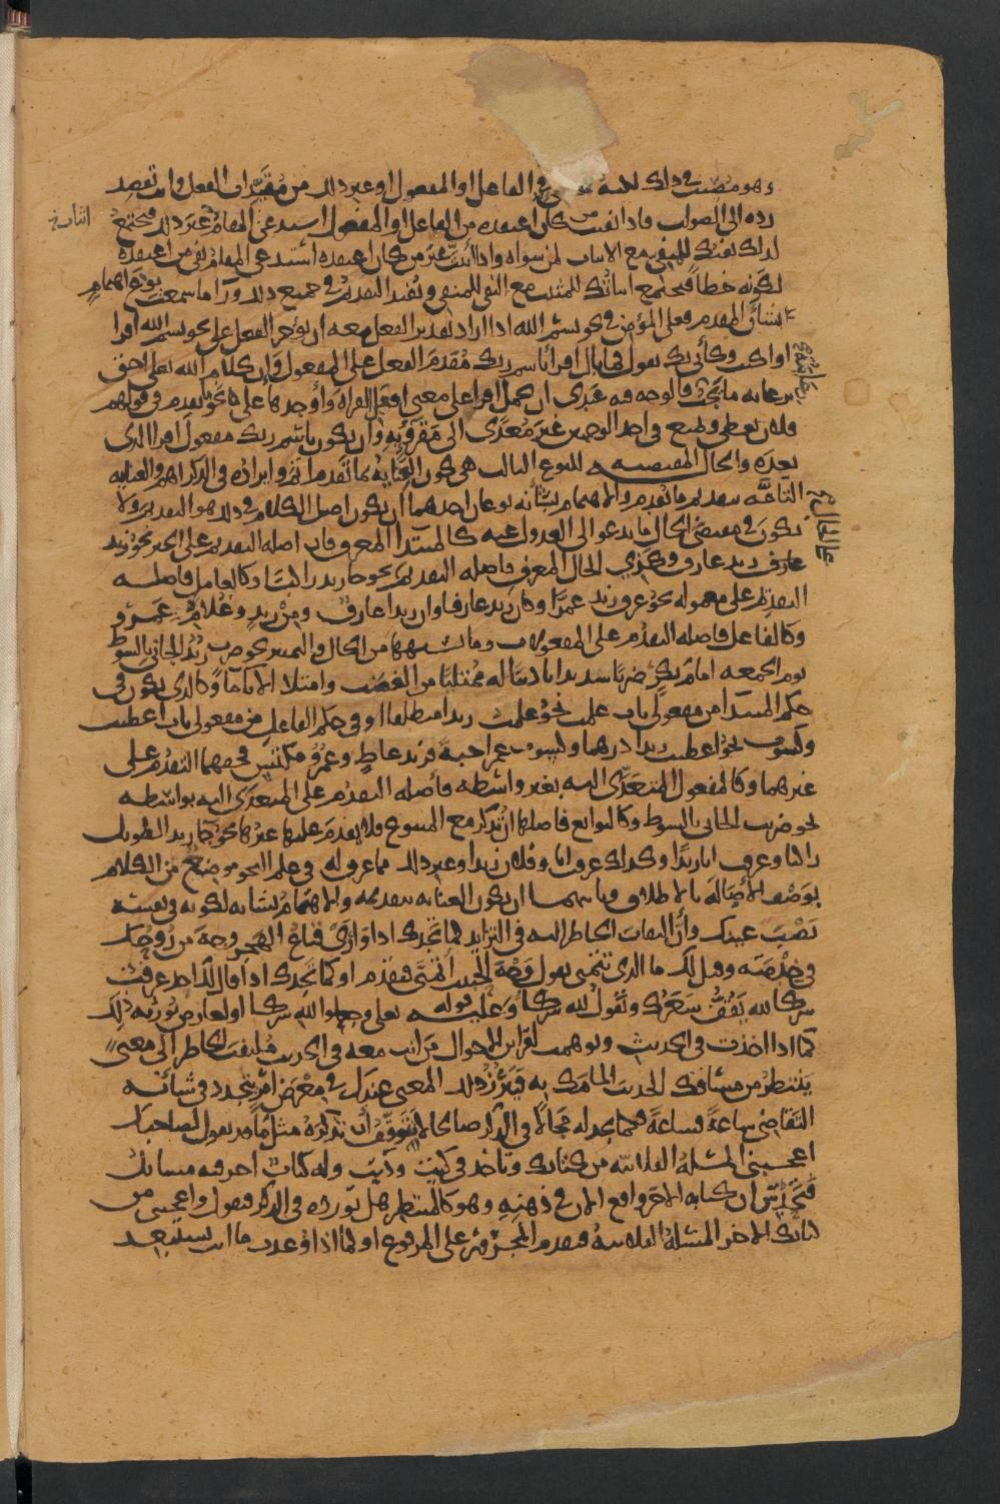 وهو مصيب في ذلك لكنه في الفاعل او المفعول او غير ذلك من مقيدات الفعل وانت تقصد
رده الى الصواب فاذا نفيت من كان اعتقده من الفاعل او المفعول استدعى المقام غير ذلك فيجتمع
لذلك نفيك للمنفي مع الاثبات لمن سواه واذا اثبت غير من كان اعتقده استدعى المقام نفي من اعتقده
لكونه خطأ فيجتمع اثباتك للمثبت مع النفي للمنفي ويفيد التقديم في جميع ذلك ورآ ما سمعت نوع اهتمام
بشان المقدم فعلى المؤمن في نحو بسم الله اذا اراد تقدير الفعل معه ان يؤخر الفعل على نحو بسم الله اقرا
او اكتب وكأني بك تقول فما بال اقرا باسم ربك مقدم الفعل على المفعول وان كلام الله تعالى احق
برعاية ما يجب فالوجه فيه عندي ان يحمل اقرا على معنى افعل القراه وأوجدها على نحو ما تقدم في قولهم
فلان يعطي ويمنع في احد الوجهين غير معدى الى مقروء به وان يكون باسم ربك مفعول اقرا الذي
بعده والحال المقتضيه للنوع الثالث هي كون العناية بما تقدم اتم وايراده في الذكر اهم والعنايه
التامه بتقديم ما يقدم والاهتمام بشأنه نوعان احدهما ان يكون اصل الكلام في ذلك هو التقديم ولا
يكون في مقتضى الحال ما يدعو الى العدول عنه كالمبتدا المعرف فان اصله التقديم على الخبر نحو زيد
عارف وكذي الحال المعرف فاصله التقديم نحو جا زيد راكبا وكالعامل فاصله
التقديم على معموله نحو عرف زيد عمرا وكان زيد عارفا وان زيدا عارف ومن زيد وغلام عمرو
وكالفاعل فاصله التقدم على المفعولات وما يشبهها من الحال والتمييز نحو ضرب زيد الجاني بالسوط
يوم الجمعه امام بكر ضربا شديدا تاديبا له ممتلئا من الغضب وامتلا الانا ماء وكالذي يكون في
حكم المبتدا من مفعولي باب علمت نحو علمت زيدا منطلقا او في حكم الفاعل من مفعولي باب اعطيت
وكسوت نحو اعطيت زيدا درهما وكسوت عمرا جبة فزيد عاط وعمرو مكتس فحقهما التقدم على
غيرهما وكالمفعول المتعدى اليه بغير واسطه فاصله التقدم على المتعدى اليه بواسطه
نحو ضربت الجاني بالسوط وكالتوابع فاصلها ان تذكر مع المتبوع فلا يقدم عليها غيرها نحو جا زيد الطويل
راكبا وعرفت انا زيدا وكذلك عرفت انا وفلان زيدا وغير ذلك مما عرف له في علم النحو موضع من الكلام
بوصف الاصالة بالاطلاق وثانيهما ان يكون العناية بتقديمه والاهتمام بشانه لكونه في نفسه
نصب عينك وأن التفات الخاطر اليه في التزايد كما تجدك اذا وارى قناع الهجر وجه من روحك
في خدمته وقيل لك ما الذي تتمنى تقول وجه الحبيب اتمنى فتقدم او كما تجدك اذا قال لك احد عرفت
شركا لله يقف شعرك وتقول لله شركا وعليه قوله تعالى وجعلوا لله شركا او لعارض يورثه ذلك
كما اذا اخذت في الحديث وتوهمت لقراين الاحوال من انت معه في الحديث ملتفت الخاطر الى معنى
ينتظر من مساقك الحديث المامك به فيبرز ذلك المعنى عندك في معرض امر يتجدد في شانه
التقاضي ساعة فساعة فكما تجد له مجالا في الذكر صالحا لا تتوقف أن تذكره مثل ما قد يقول لصاحبك
اعجبتني المسئلة الفلانيه من كتابك وتاخذ في كيت وكيت وله كتاب اخر فيه مسائل
فتحدس ان كتابه الآخر واقع الآن في ذهنه وهو كالمنتظر هل تورده في الذكر فتقول واعجبني من
كتابك الاخر المسئلة الفلانية فتقدم المجرور على المرفوع او كما اذا وعدت ما انت تستبعد